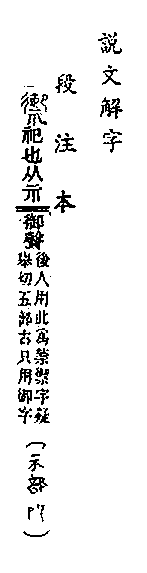 説文解字
段注本
禦祀也从示御聲
後人用此為禁禦字疑
舉切五部古只用御字
(示部)